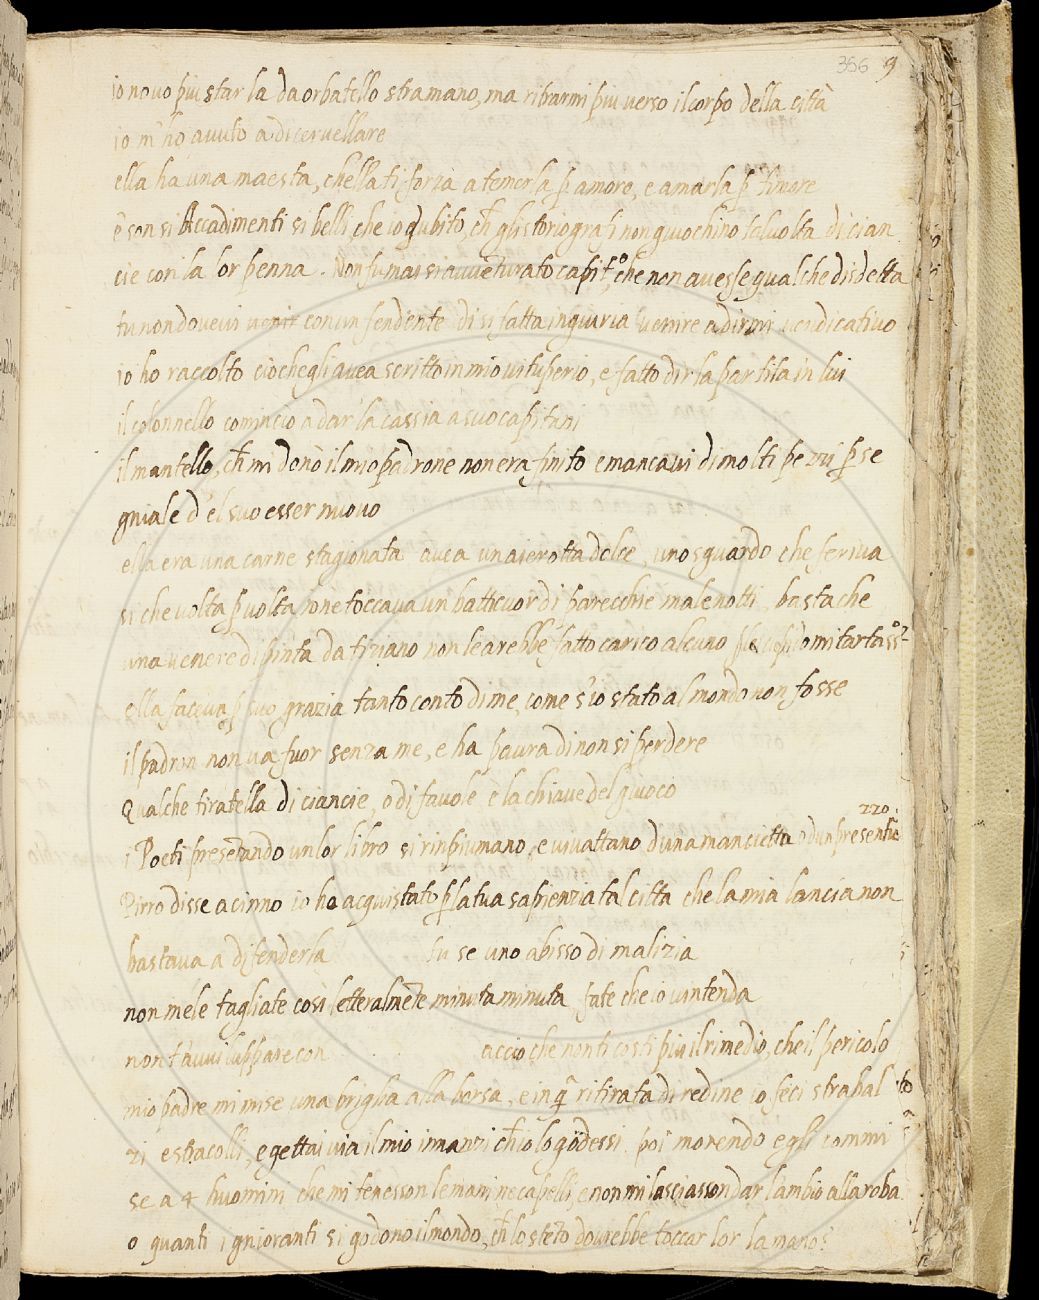 366 9
io no vo piu star la da orbatello stramano, ma ritrarmi piu verso il corpo della città
io m'ho avuto a dicervellare
ella ha una maesta, ch'ella ti forza a temerla p amore, e amarla p timore
e son si Accadimenti si belli, che io dubito, ch gl'istoriografi non giuochino talvolta di cian
cie con la lor penna. Non fu mai si avventurato capit.o, che non avesse qualche disdetta
tu non dovevi venir con un fendente di si fatta ingiuria venire a dirmi vendicativo
io ho raccolto ciò ch'egli avea scritto in mio vituperio, e fatto dir la partita in lui
il colonnello cominciò a dar la cassia a suo capitani
il mantello, ch mi donò il mio padrone non era finito e mancavi di molti pe p se
gniale d'el suo esser nuovo
ella era una carne stagionata avea un'aierotta dolce, uno sguardo che feriva
si che volta p volta ione toccava un batticuor di parecchie male notti, basta che
una venere dipinta da tiziano non le arebbe fatto carico alcuno
ella faceva p suo grazia tanto conto di me, come s'io stato al mondo non fosse
il padron non va fuor senza me, e ha paura di non si perdere
Qualche tiratella di ciancie, o di favole è la chiave del giuoco
220
i Poeti presentando un lor libro si rinpiumano, e vivattano d'una mancietta o d'un presentuc
Pirro disse a cinno io ho acquistato p la tua sapienzia tal citta che la mia lancia non
bastava a difenderla tu se uno abisso di malizia
non me le tagliate così letteralmēte minuta minuta, fate che io v'intenda
non t'avviluppare con acciò che non ti costi piu il rimedio, che il pericolo
mio padre mi mise una briglia alla borsa, e in q ritirata di redine io feci strabal
zi e stracolli, e gettai via il mio innanzi ch io lo godessi. poi morendo egli commi
se a 4 huomini che mi tenesson le mani ne capelli, e non mi lasciasson dar l'ambio alla roba
o quanti ignioranti si godono il mondo, ch lo stēto dovrebbe toccar lor la mano